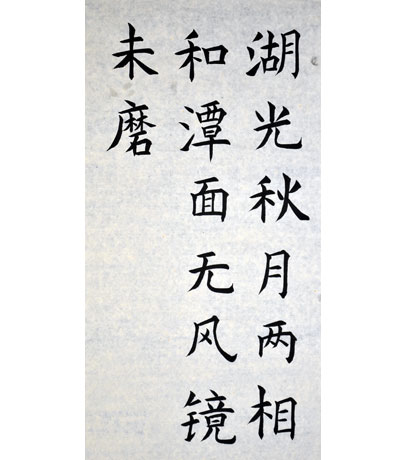 湖光秋月两相
和潭面无风镜
未磨